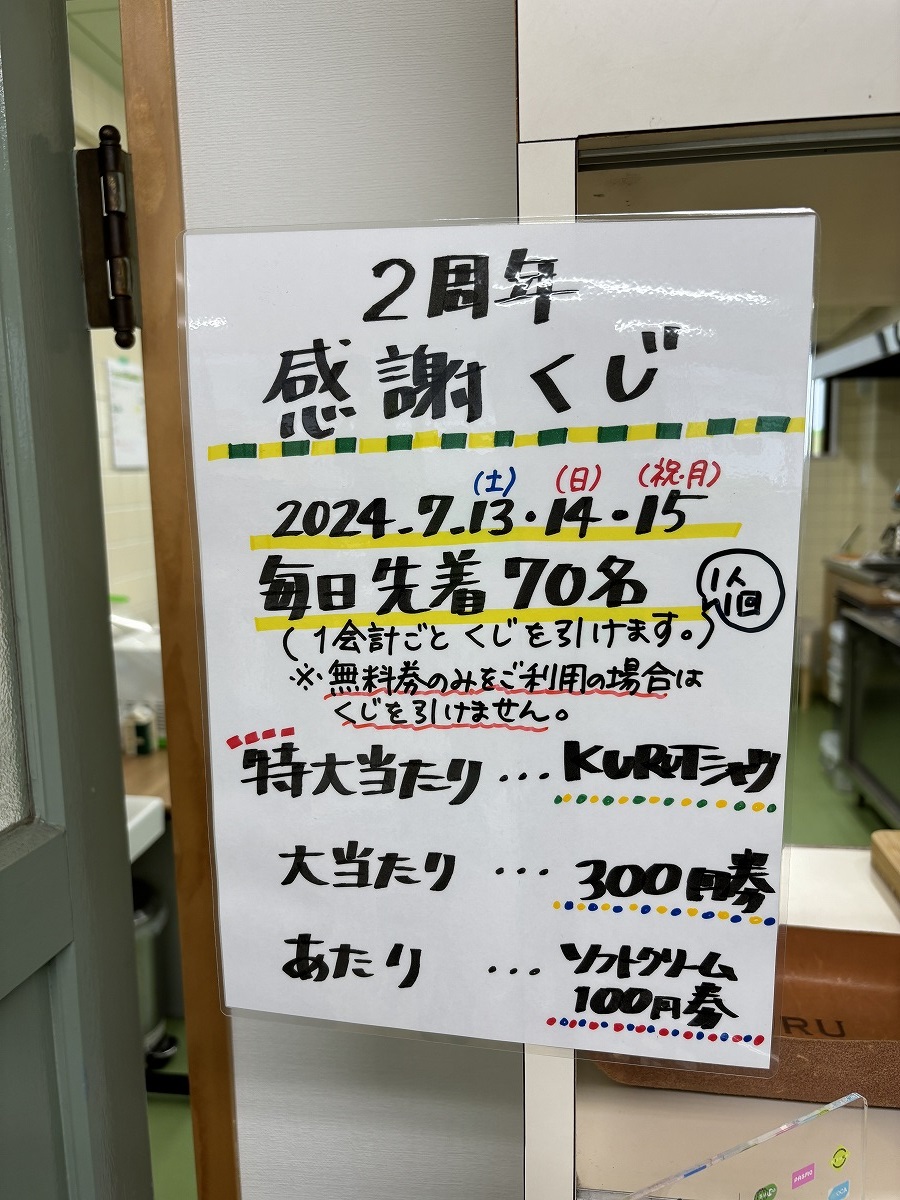 2周年
感謝くじ
(土) (日) (祝・月)
2024.7.13・14・15
毎日先着70名
1人
1回
(1会計ごとくじを引けます。)
※無料券のみをご利用の場合は
くじを引けません。
特大当たり…KURUTシャツ
大当たり…300円券
あたり…ソフトクリーム
100円券
RU